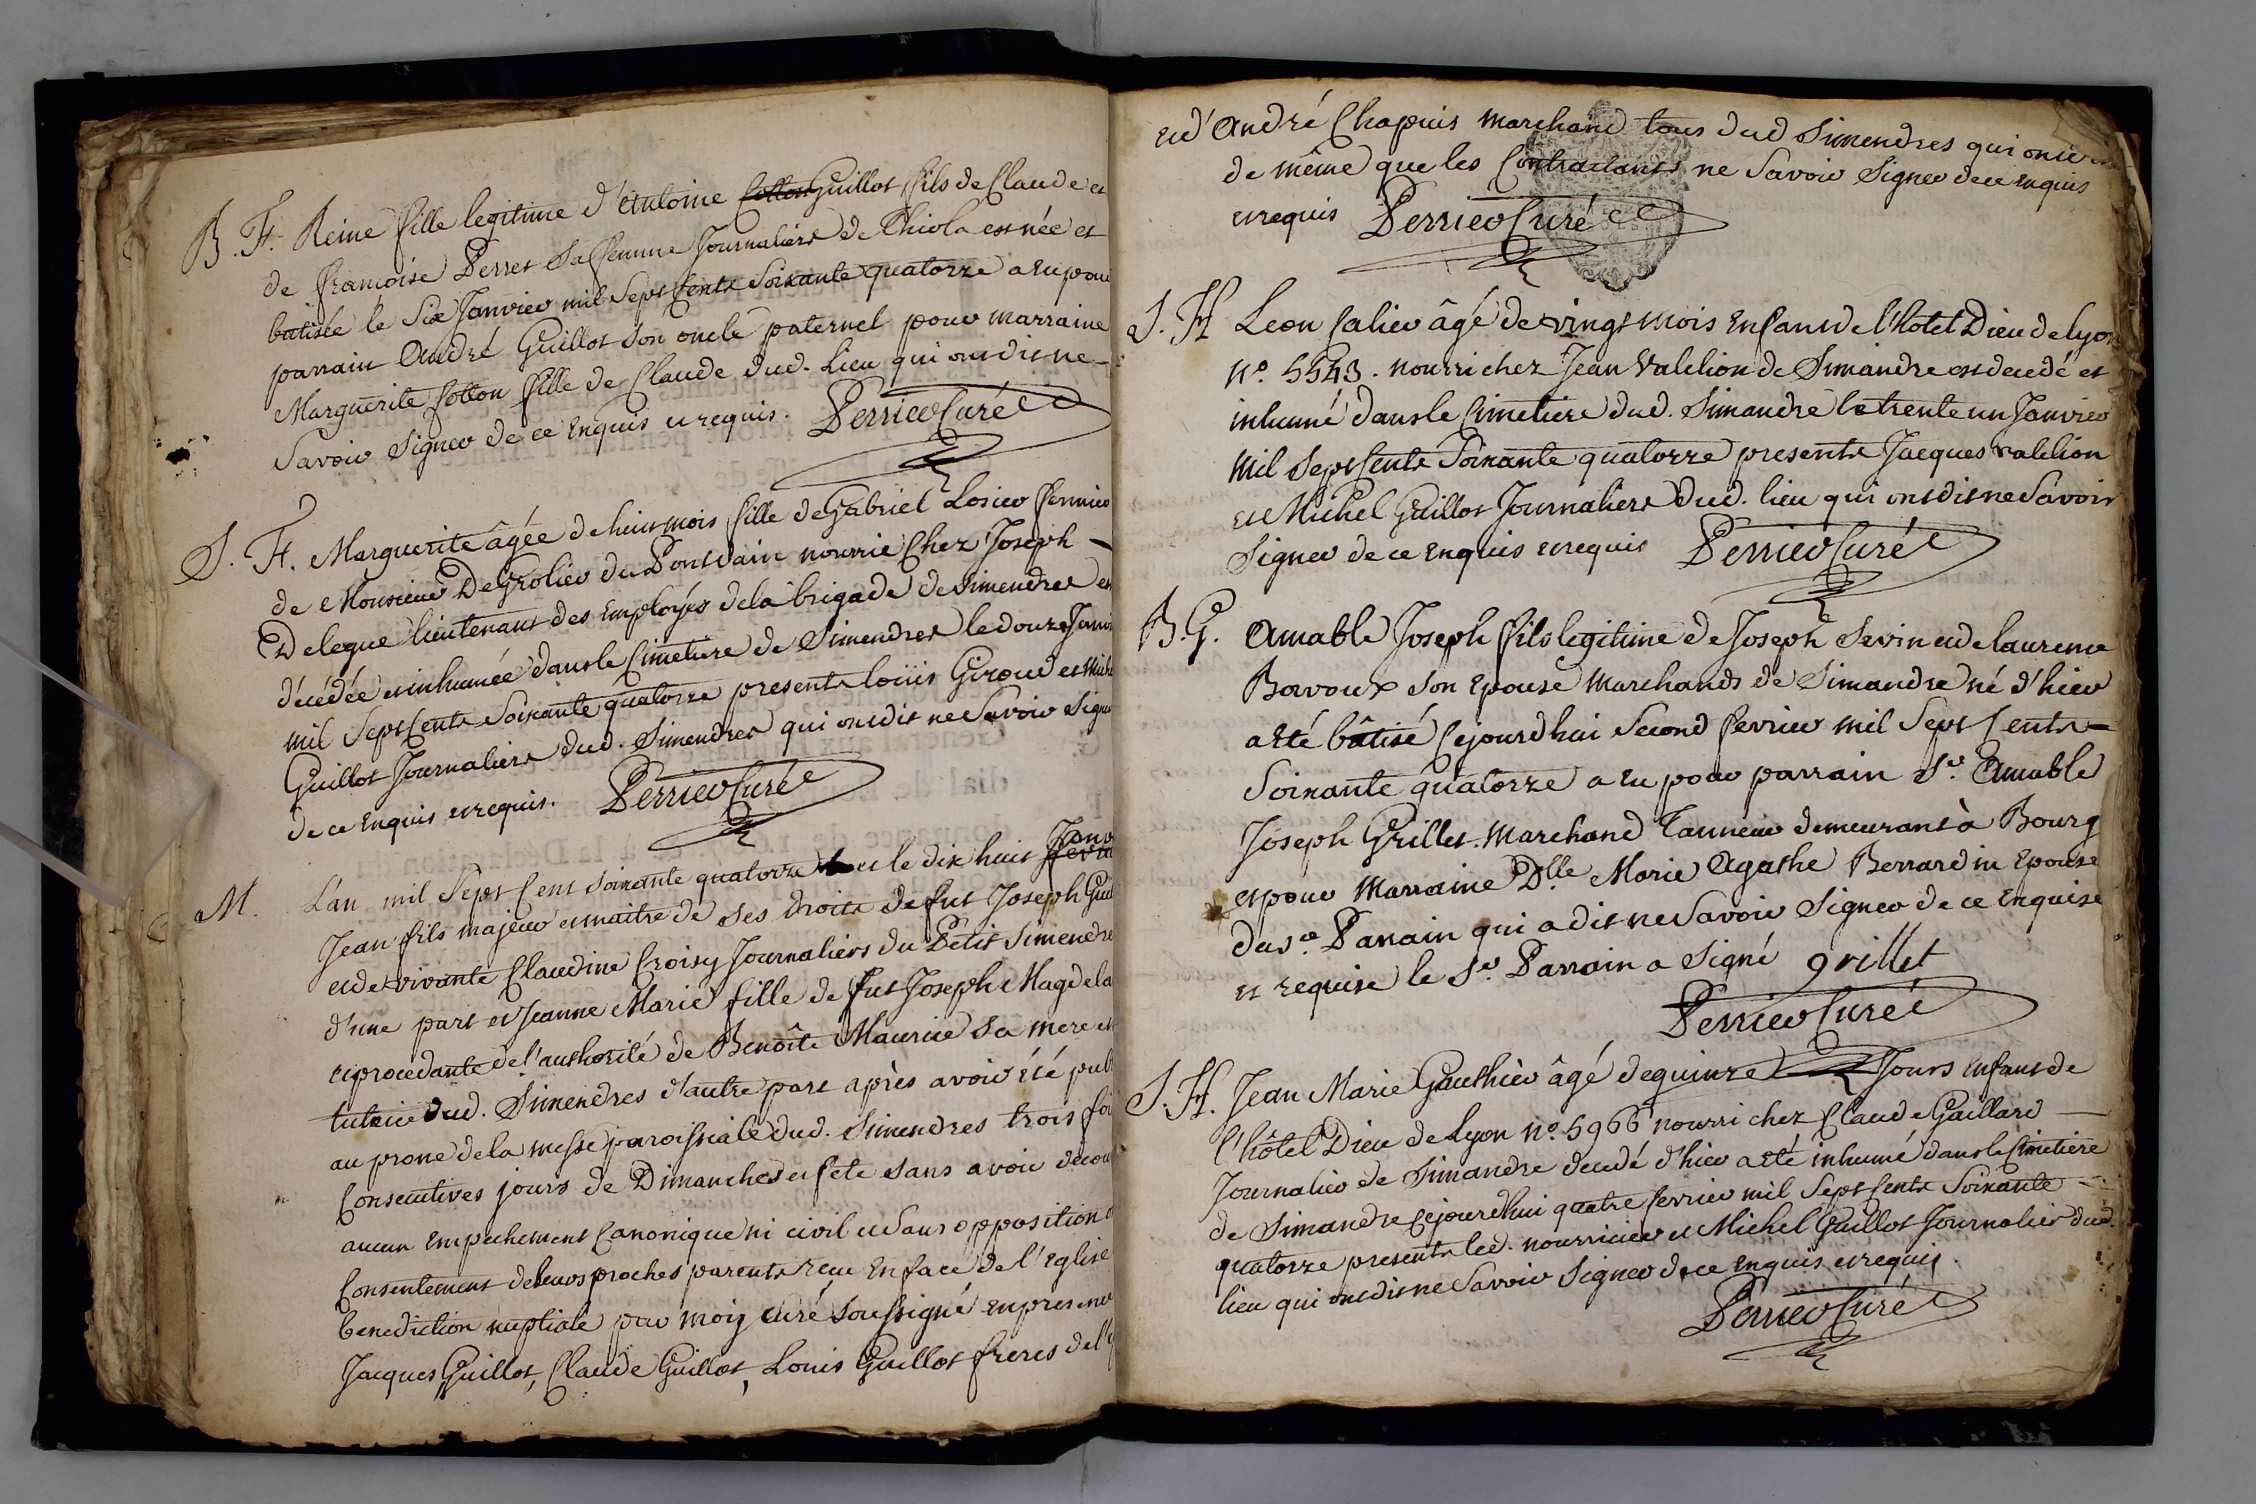 B. F. Reine fille legitime d'Antoine Cotton Guillot fils de Claude et
de francoise Perret Sa femme Journaliers de Thiola est née et
batisée le Six Janvier mil Sept Cents Soixante quatorze a eu pour
parrain André Guillot Son oncle paternel pour marraine
Marguerite Cotton fille de Claude dud. Lieu qui ont dit ne
Savoir Signer de ce Enquis et requis. Perrier Curé
S. F. Marguerite âgée de huit mois fille de Gabriel Losier fermier
de Monsieur De Grolier du Pont d'ain nourrie Chez Joseph
Deleque lieutenant des Employés de la brigade de Simendres est
décédée et inhumée dans le Cimetiere de Simendres le douze Janvi
mil Sept Cents Soixante quatorze presents loüis Giroud et Miche
Guillot Journaliers dud. Simendres qui ont dit ne Savoir Signe
de ce Enquis et requis. Perrier Curé
M. L'an mil Sept Cent Soixante quatorze et le dix huit Janv
Jean fils majeur et maitre de Ses droits de fut Joseph Guil
et de vivante Claudine Croisy Journaliers du Petit Simendre
d'une part et Jeanne Marie fille de fut Joseph Magdela
et procedante de l'authorité de Benoîte Maurice Sa mere et
tutrice dud. Simendres d'autre part après avoir été publ
au prone de la messe paroissiale dud. Simendres trois foi
Consecutives jours de Dimanches et fete Sans avoir decou
aucun Empechement Canonique ni civil et Sans opposition
Consentement de leurs proches parents recu En face de l'Eglise
benediction nuptiale par moy Curé Soussigné en presence
Jacques Guillot, Claude Guillot, Louis Guillot freres de l'
et d'André Chapuis marchand tous dud Simendres qui ont
de même que les Contractants ne Savoir Signer de ce Enquis
et requis Perrier Curé
S. H Leon Calier âgé de vingt mois Enfant de l'hotel Dieu de Lyon
N°. 5543. nourri chez Jean Valelion de Simandre est decedé et
inhumé dans le Cimetiere dud. Simandre le trente un Janvier
Mil Sept Cents Soixante quatorze presents Jacques Valelion
et Michel Guillot Journaliers dud. lieu qui ont dit ne Savoir
Signer de ce Enquis et requis Perrier Curé
B. G. Amable Joseph fils legitime de Joseph Sevin et de laurence
Bovoux Son Epouse Marchands de Simandre né d'hier
a Eté bâtisé Cejourd'hui Second fevrier mil Sept Cents
Soixante quatorze a Eu pour parrain Sr. Amable
Joseph Grillet Marchand Tanneur demeurant à Bourg
et pour Marraine Dlle Marie Agathe Bernardin Epouse
du Sr Parrain qui a dit ne Savoir Signer de ce Enquise
et requise le Sr. Parrain a Signé grillet
Perrier Curé
S. H. Jean Marie Gauthier âgé de quinze Jours Enfant de
l'hôtel Dieu de Lyon N°. 5966 nourri chez Claude Gaillard
Journalier de Simandre decedé d'hier a eté inhumé dans le Cimetiere
de Simandre Cejourd'hui quatre fevrier mil Sept Cents Soixante
quatorze presents led. nourricier et Michel Guillot Journalier dud.
lieu qui ont dit ne Savoir Signer de ce Enquis et requis.
Perrier Curé